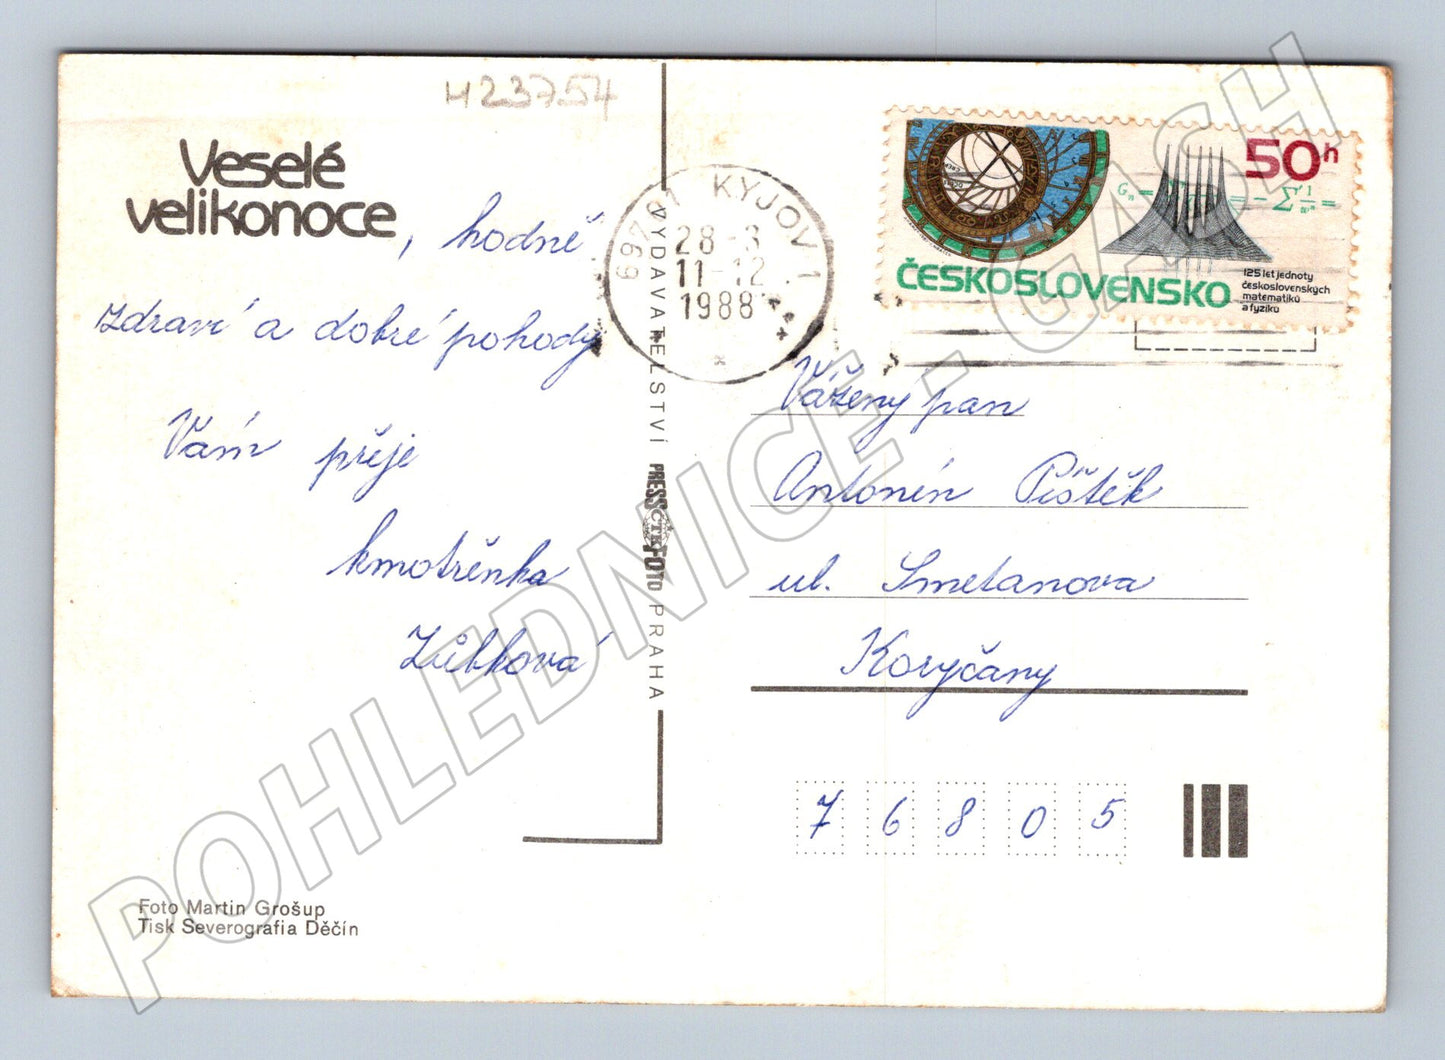 H23754
Veselé
velikonoce
, hodně
zdraví a dobré pohody
Vám přeje
kmotřenka
Zůbková
Foto Martin Grošup
Tisk Severografia Děčín
VYDAVATELSTVÍ PRESSFOTO PRAHA
ČTK
697 01 KYJOV 1
28 -3
11-12
1988
50h
ČESKOSLOVENSKO
125 let jednoty
československých
matematiků
a fyziků
Vážený pan
Antonín Pištěk
ul. Smetanova
Koryčany
76805
POHLEDNICE - CASH